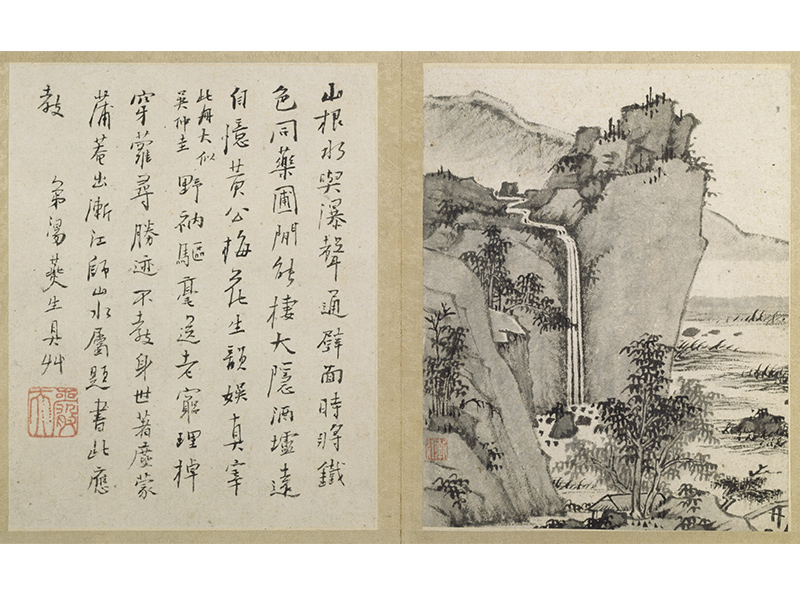 山根水與瀑聲通劈面時將鐵
色同藥圃閒能棲大隱酒壚遠
自憶黃公梅花生韻娛真宰
此册大似
吳仲圭
野衲驅毫送老窮理棹
穿蘿尋勝迹不教身世著塵蒙
蒲菴出漸江師山水屬題書此應
教
弟湯燕生具艸